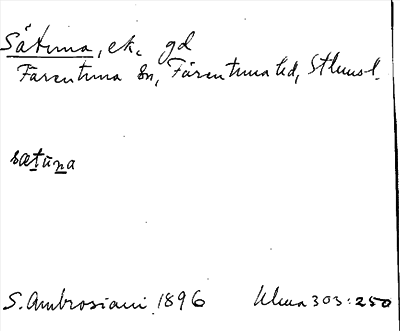 Sätuna, ek. gd
Färentuna sn, Färentuna hd, Sthmsl.
sætūna
S. Ambrosiani 1896 Ulma 303:250